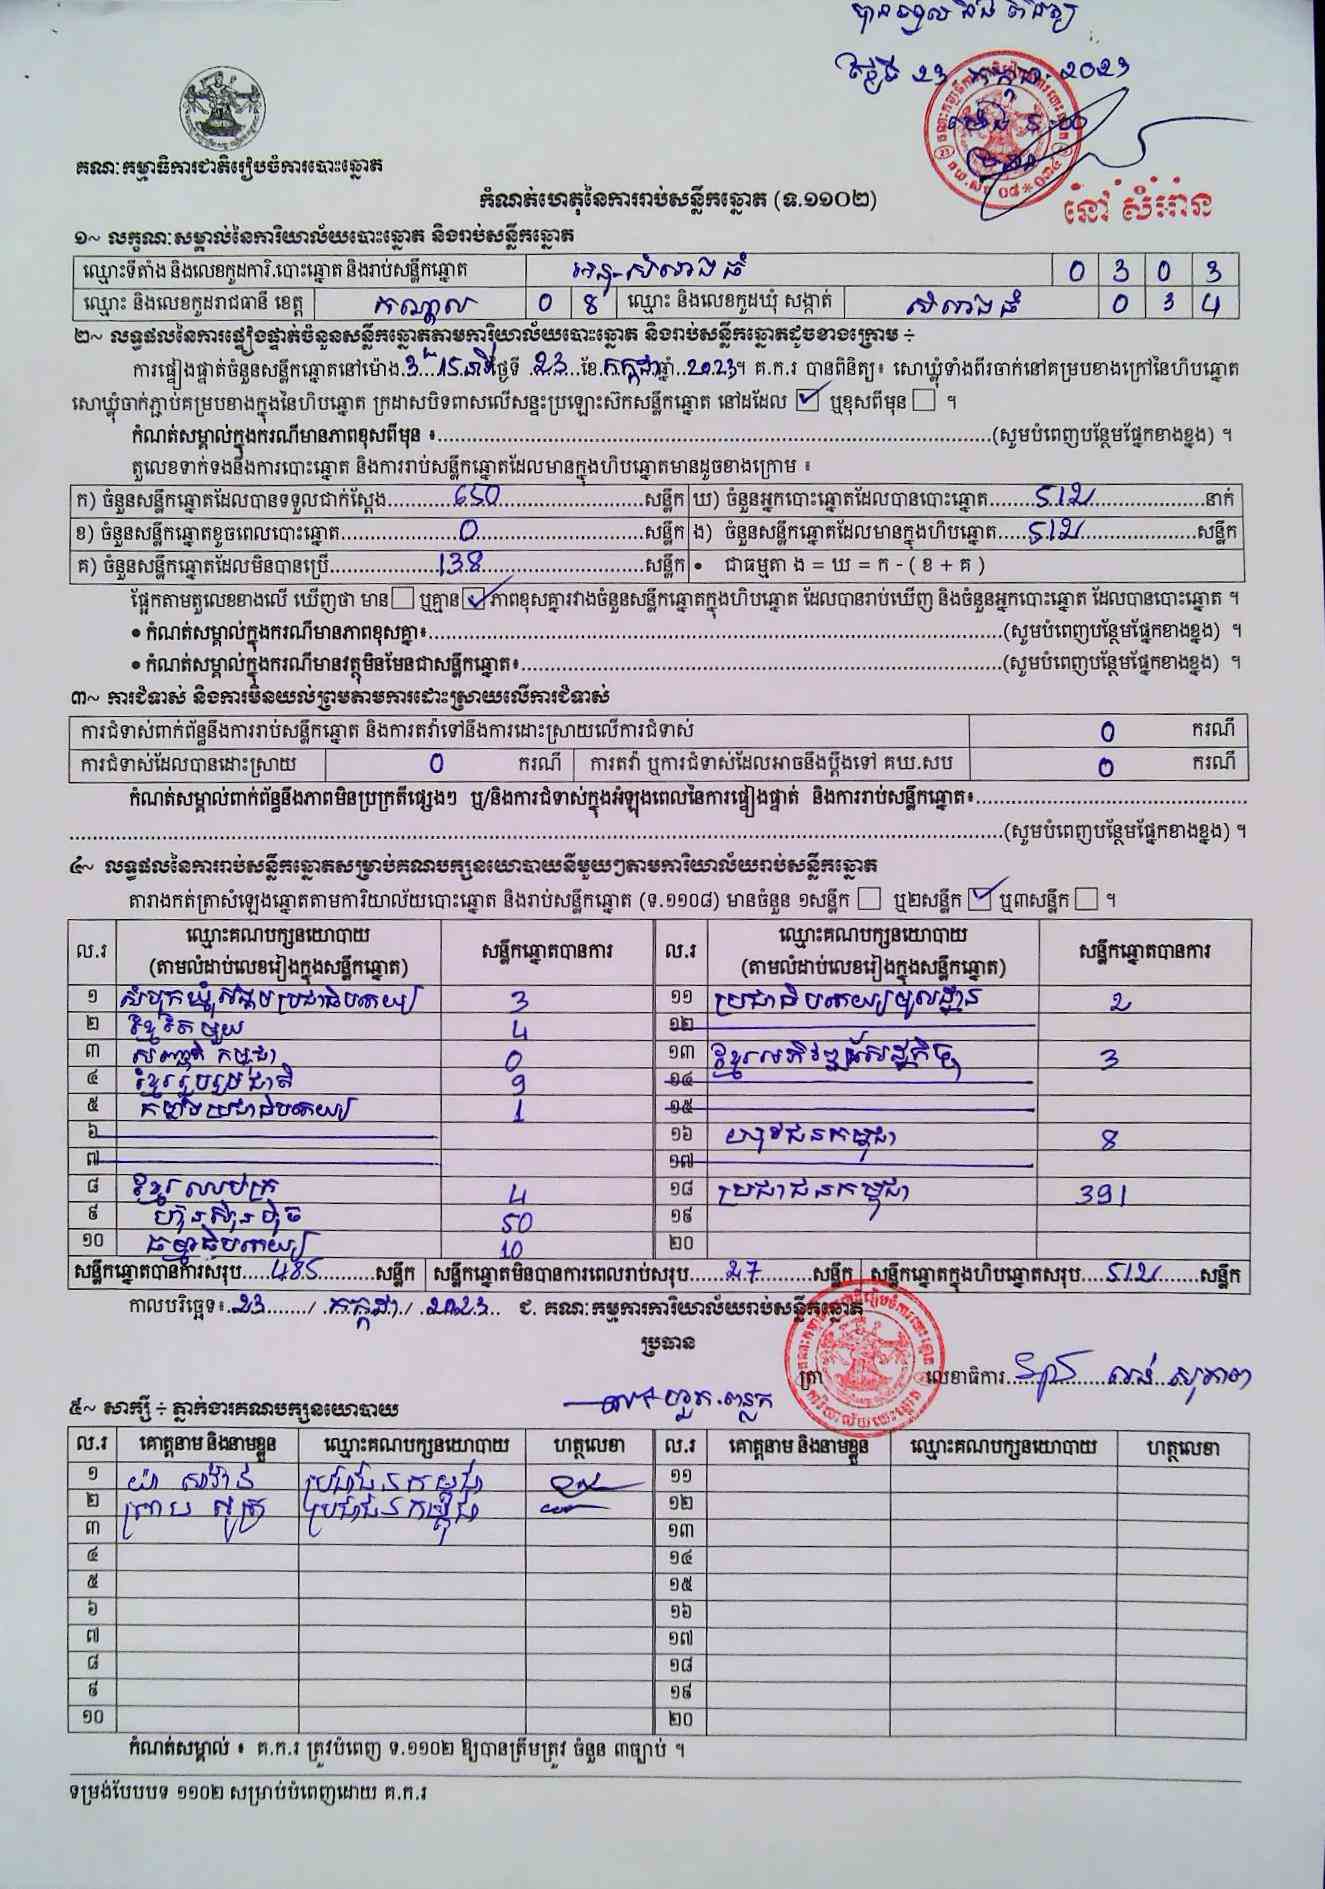 ថ្ងៃទី 23 កក្កដា 2023
នៅ សំអាន
គណៈកម្មាធិការជាតិរៀបចំការបោះឆ្នោត
កំណត់ហេតុនៃការរាប់សន្លឹកឆ្នោត (ទ.១១០២)
១~ លក្ខណៈសម្គាល់នៃការិយាល័យបោះឆ្នោត និងរាប់សន្លឹកឆ្នោត
ឈ្មោះទីតាំង និងលេខកូដការិ.បោះឆ្នោត និងរាប់សន្លឹកឆ្នោត 0 3 0 3
ឈ្មោះ និងលេខកូដរាជធានី ខេត្ត កណ្តាល 0 8 ឈ្មោះ និងលេខកូដឃុំ សង្កាត់ សំរោងធំ 0 3 4
២~ លទ្ធផលនៃការផ្ទៀងផ្ទាត់ចំនួនសន្លឹកឆ្នោតតាមការិយាល័យបោះឆ្នោត និងរាប់សន្លឹកឆ្នោតដូចខាងក្រោម ÷
ការផ្ទៀងផ្ទាត់ចំនួនសន្លឹកឆ្នោតនៅម៉ោង 3 15 នាទី ថ្ងៃទី 23 ខែ កក្កដា ឆ្នាំ 2023 ។ គ.ក.រ បានពិនិត្យ៖ សោឃ្លុំទាំងពីរចាក់នៅគម្របខាងក្រៅនៃហិបឆ្នោត
សោឃ្លុំចាក់ភ្ជាប់គម្របខាងក្នុងនៃហិបឆ្នោត ក្រដាសបិទពាសលើសន្ទះប្រឡោះស៊កសន្លឹកឆ្នោត នៅដដែល ☑ ឬខុសពីមុន ☐ ។
កំណត់សម្គាល់ក្នុងករណីមានភាពខុសពីមុន ៖ (សូមបំពេញបន្ថែមផ្នែកខាងខ្នង) ។
តួលេខទាក់ទងនឹងការបោះឆ្នោត និងការរាប់សន្លឹកឆ្នោតដែលមានក្នុងហិបឆ្នោតមានដូចខាងក្រោម ៖
ក) ចំនួនសន្លឹកឆ្នោតដែលបានទទួលជាក់ស្តែង 650 សន្លឹក ឃ) ចំនួនអ្នកបោះឆ្នោតដែលបានបោះឆ្នោត 512 នាក់
ខ) ចំនួនសន្លឹកឆ្នោតខូចពេលបោះឆ្នោត 0 សន្លឹក ង) ចំនួនសន្លឹកឆ្នោតដែលមានក្នុងហិបឆ្នោត 512 សន្លឹក
គ) ចំនួនសន្លឹកឆ្នោតដែលមិនបានប្រើ 138 សន្លឹក • ជាធម្មតា ង = ឃ = ក - ( ខ + គ )
ផ្អែកតាមតួលេខខាងលើ ឃើញថា មាន ☐ ឬគ្មាន ☑ ភាពខុសគ្នារវាងចំនួនសន្លឹកឆ្នោតក្នុងហិបឆ្នោត ដែលបានរាប់ឃើញ និងចំនួនអ្នកបោះឆ្នោត ដែលបានបោះឆ្នោត ។
• កំណត់សម្គាល់ក្នុងករណីមានភាពខុសគ្នា៖ (សូមបំពេញបន្ថែមផ្នែកខាងខ្នង) ។
• កំណត់សម្គាល់ក្នុងករណីមានវត្ថុមិនមែនជាសន្លឹកឆ្នោត៖ (សូមបំពេញបន្ថែមផ្នែកខាងខ្នង) ។
៣~ ការជំទាស់ និងការមិនយល់ព្រមតាមការដោះស្រាយលើការជំទាស់
ការជំទាស់ពាក់ព័ន្ធនឹងការរាប់សន្លឹកឆ្នោត និងការតវ៉ាទៅនឹងការដោះស្រាយលើការជំទាស់ 0 ករណី
ការជំទាស់ដែលបានដោះស្រាយ 0 ករណី ការតវ៉ា ឬការជំទាស់ដែលអាចនឹងប្តឹងទៅ គឃ.សប 0 ករណី
កំណត់សម្គាល់ពាក់ព័ន្ធនឹងភាពមិនប្រក្រតីផ្សេងៗ ឬ/និងការជំទាស់ក្នុងអំឡុងពេលនៃការផ្ទៀងផ្ទាត់ និងការរាប់សន្លឹកឆ្នោត៖
(សូមបំពេញបន្ថែមផ្នែកខាងខ្នង) ។
៤~ លទ្ធផលនៃការរាប់សន្លឹកឆ្នោតសម្រាប់គណបក្សនយោបាយនីមួយៗតាមការិយាល័យរាប់សន្លឹកឆ្នោត
តារាងកត់ត្រាសំឡេងឆ្នោតតាមការិយាល័យបោះឆ្នោត និងរាប់សន្លឹកឆ្នោត (ទ.១១០៨) មានចំនួន ១សន្លឹក ☐ ឬ២សន្លឹក ☑ ឬ៣សន្លឹក ☐ ។
ល.រ ឈ្មោះគណបក្សនយោបាយ (តាមលំដាប់លេខរៀងក្នុងសន្លឹកឆ្នោត) សន្លឹកឆ្នោតបានការ ល.រ ឈ្មោះគណបក្សនយោបាយ (តាមលំដាប់លេខរៀងក្នុងសន្លឹកឆ្នោត) សន្លឹកឆ្នោតបានការ
១ សំបុកឃ្មុំសង្គមប្រជាធិបតេយ្យ 3 ១១ ប្រជាធិបតេយ្យមូលដ្ឋាន 2
២ ខ្មែរតែមួយ 4 ១២
៣ សញ្ជាតិកម្ពុជា 0 ១៣ ខ្មែរអភិវឌ្ឍន៍សេដ្ឋកិច្ច 3
៤ ខ្មែររួបរួមជាតិ 9 ១៤
៥ កម្លាំងប្រជាធិបតេយ្យ 1 ១៥
៦ ១៦ យុវជនកម្ពុជា 8
៧ ១៧
៨ ខ្មែរឈប់ក្រ 4 ១៨ ប្រជាជនកម្ពុជា 391
៩ ហ៊្វុនស៊ិនប៉ិច 50 ១៩
១០ ធម្មាធិបតេយ្យ 10 ២០
សន្លឹកឆ្នោតបានការសរុប 485 សន្លឹក សន្លឹកឆ្នោតមិនបានការពេលរាប់សរុប 27 សន្លឹក សន្លឹកឆ្នោតក្នុងហិបឆ្នោតសរុប 512 សន្លឹក
កាលបរិច្ឆេទ៖ 23 / កក្កដា / 2023 ជ. គណៈកម្មការការិយាល័យរាប់សន្លឹកឆ្នោត
ប្រធាន
ត្រា លេខាធិការ
៥~ សាក្សី ÷ ភ្នាក់ងារគណបក្សនយោបាយ
ល.រ គោត្តនាម និងនាមខ្លួន ឈ្មោះគណបក្សនយោបាយ ហត្ថលេខា ល.រ គោត្តនាម និងនាមខ្លួន ឈ្មោះគណបក្សនយោបាយ ហត្ថលេខា
១ ប្រជាជនកម្ពុជា ១១
២ ប្រជាជនកម្ពុជា ១២
៣ ១៣
៤ ១៤
៥ ១៥
៦ ១៦
៧ ១៧
៨ ១៨
៩ ១៩
១០ ២០
កំណត់សម្គាល់ ៖ គ.ក.រ ត្រូវបំពេញ ទ.១១០២ ឱ្យបានត្រឹមត្រូវ ចំនួន ៣ច្បាប់ ។
ទម្រង់បែបបទ ១១០២ សម្រាប់បំពេញដោយ គ.ក.រ